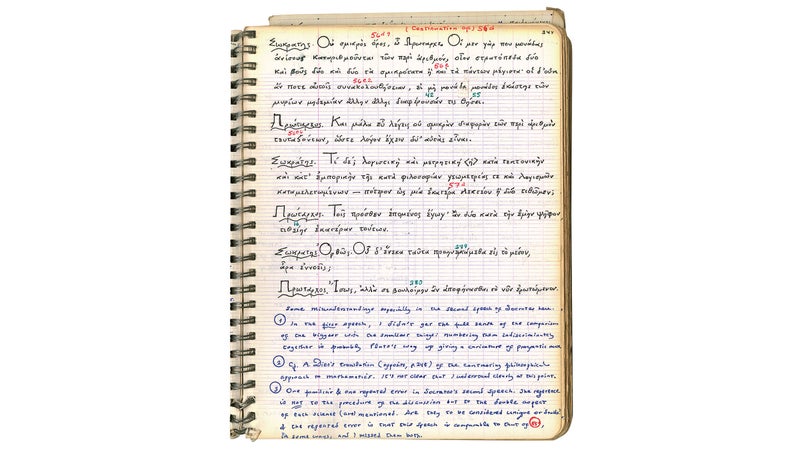 (Continuation of) 56d
241
56d9
Σωκράτης. Οὐ σμικρὸς ὅρος, ὦ Πρώταρχε. Οἱ μὲν γάρ που μονάδας
ἀνίσους καταριθμοῦνται τῶν περὶ ἀριθμόν, οἷον στρατόπεδα δύο
56e
καὶ βοῦς δύο καὶ δύο τὰ σμικρότατα ἢ καὶ τὰ πάντων μέγιστα· οἱ δ'
56e2
ἄν ποτε αὐτοῖς συνακολουθήσειαν, εἰ μὴ μονάδα μονάδος ἑκάστης τῶν
42 55
μυρίων μηδεμίαν ἄλλην ἄλλης διαφέρουσάν τις θήσει.
Πρώταρχος. Καὶ μάλα εὖ λέγεις οὐ σμικρὰν διαφορὰν τῶν περὶ ἀριθμὸν
τευταζόντων, ὥστε λόγον ἔχειν δύ' αὐτὰς εἶναι.
Σωκράτης. Τί δέ; λογιστικὴ καὶ μετρητικὴ κατὰ τεκτονικὴν
καὶ κατ' ἐμπορικὴν τῆς κατὰ φιλοσοφίαν γεωμετρίας τε καὶ λογισμῶν
57a
καταμελετωμένων — πότερον ὡς μία ἑκατέρα λεκτέον ἢ δύο τιθῶμεν;
Πρώταρχος. Τοῖς πρόσθεν ἑπόμενος ἔγωγ' ἂν δύο κατὰ τὴν ἐμὴν ψῆφον
τιθείην ἑκατέραν τούτων.
Σωκράτης. Ὀρθῶς. Οὗ δ' ἕνεκα ταῦτα προηνεγκάμεθα εἰς τὸ μέσον,
ἆρα ἐννοεῖς;
280
Πρώταρχος. Ἴσως, ἀλλὰ σὲ βουλοίμην ἂν ἀποφήνασθαι τὸ νῦν ἐρωτώμενον.
Some misunderstandings especially in the second speech of Socrates here.
1 In the first speech, I didn't get the full sense of the comparison
of the biggest with the smallest things: numbering them indiscriminately
together is probably Plato's way of giving a caricature of pragmatic
2 Cf. A. Diès's translation (opposite, p.248) of the contrasting philosophical
approach to mathematics. It's not clear that I understand clearly at this point.
3 One familiar & one repeated error in Socrates's second speech. The reference
is not to the procedure of the discussion but to the double aspect
of each science (are) mentioned. Are they to be considered unique or double?
& the repeated error is that this speech is comparable to that of
in some ways, and I missed them both.